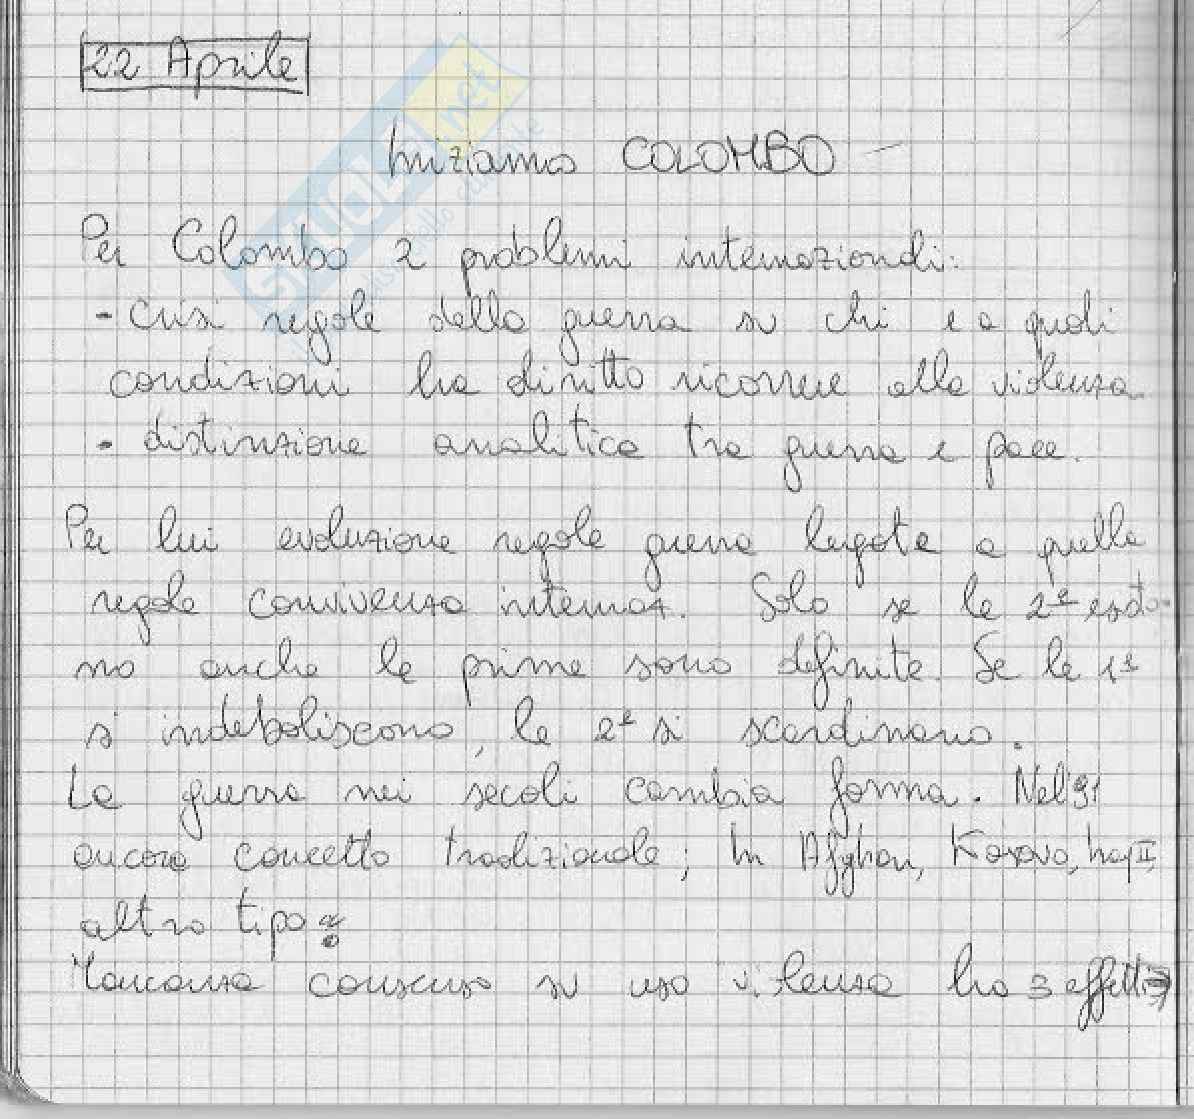 22 Aprile
Iniziamo COLOMBO
Per Colombo 2 problemi internazionali:
- crisi regole della guerra su chi e a quali
condizioni ha diritto ricorrere alla violenza
- distinzione analitica tra guerra e pace.
Per lui evoluzione regole guerra legata a quella
regole convivenza internaz. Solo se le 2e esisto
no anche le prime sono definite. Se le 1e
si indeboliscono, le 2e si scardinano.
La guerra nei secoli cambia forma. Nel '91
ancora concetto tradizionale; In Afghan, Kosovo, Iraq II,
altro tipo
Mancanza consenso su uso violenza ha 3 effetti
SKUOLA.net